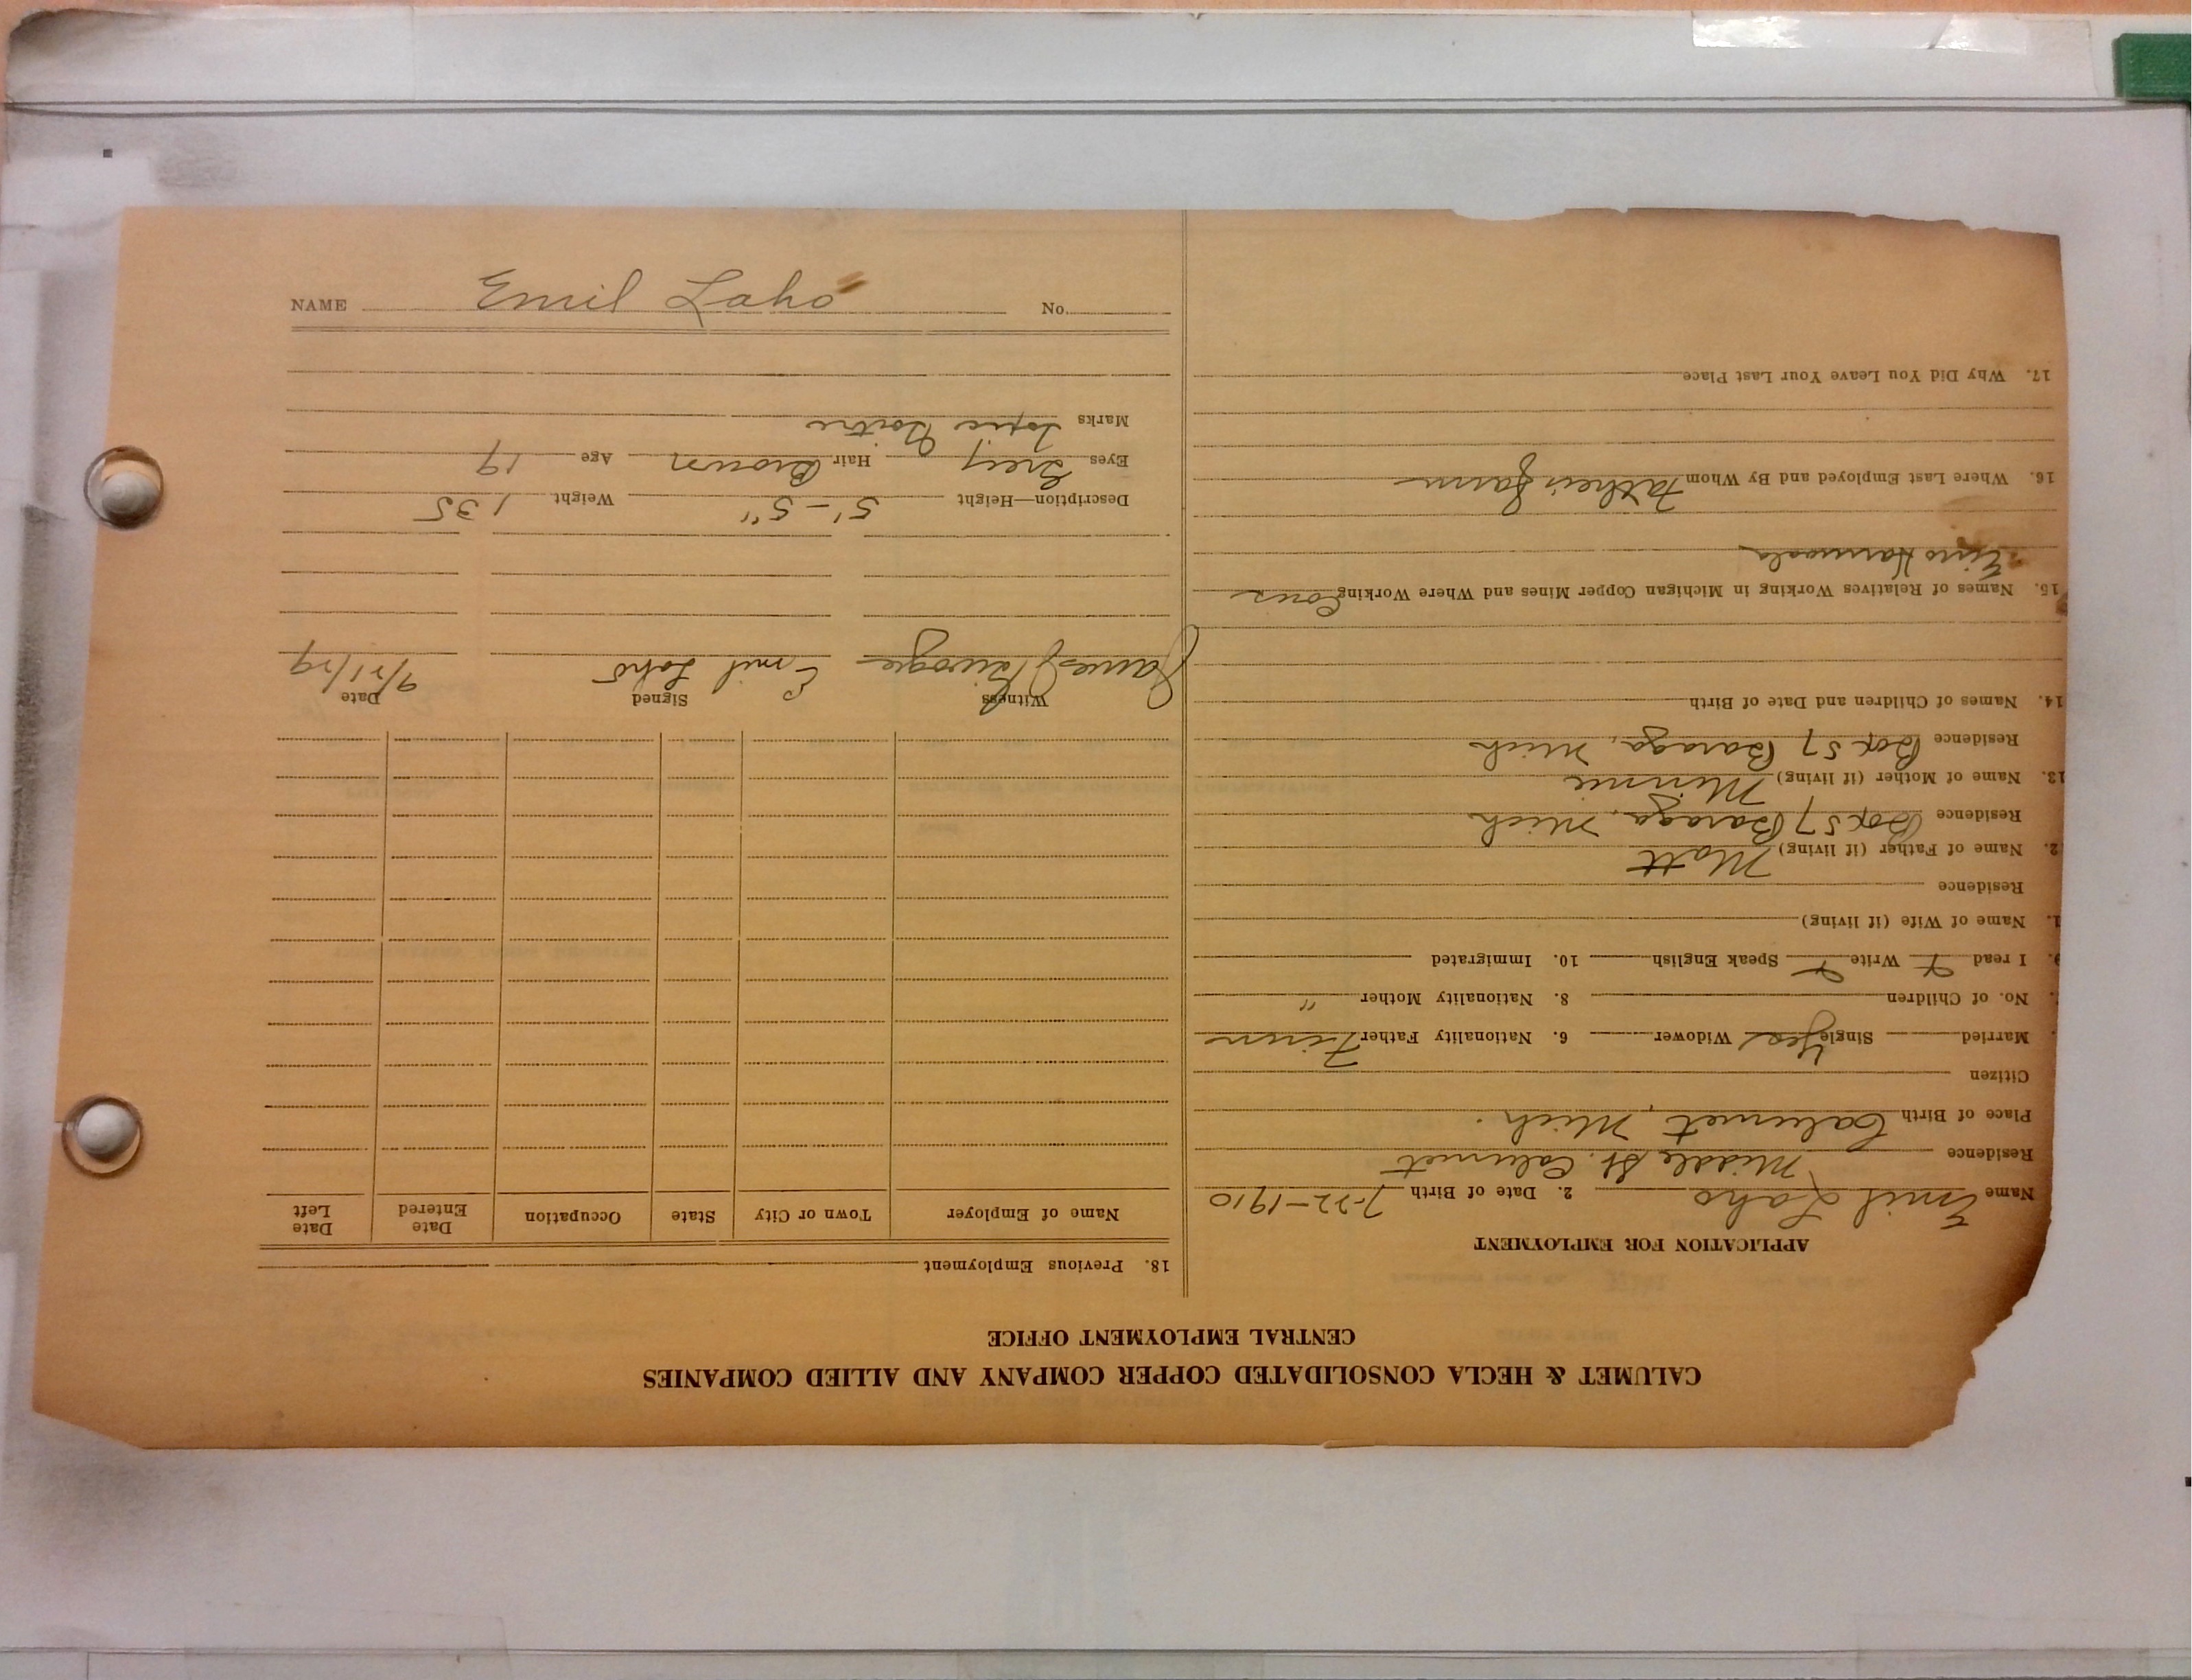 CALUMET & HECLA CONSOLIDATED COPPER COMPANY AND ALLIED COMPANIES
CENTRAL EMPLOYMENT OFFICE
APPLICATION FOR EMPLOYMENT
Name Emil Laho 2. Date of Birth 7-22-1910
Residence Middle St. Calumet
Place of Birth Calumet, Mich.
Citizen
Married Single Yes Widower 6. Nationality Father Finn
No. of Children 8. Nationality Mother "
9. I read Write Speak English 10. Immigrated
1. Name of Wife (if living)
Residence
2. Name of Father (if living) Matt
Residence Box 57 Baraga, Mich
13. Name of Mother (if living) Minnie
Residence Box 57 Baraga, Mich
14. Names of Children and Date of Birth
15. Names of Relatives Working in Michigan Copper Mines and Where Working Cous
Eino
16. Where Last Employed and By Whom Father's farm
17. Why Did You Leave Your Last Place
18. Previous Employment
Name of Employer Town or City State Occupation Date Entered Date Left
Witness Signed Date
James Emil Laho 9/21/29
Description—Height 5'-5" Weight 135
Eyes Grey Hair Brown Age 19
Marks Goitre
NAME Emil Laho No.